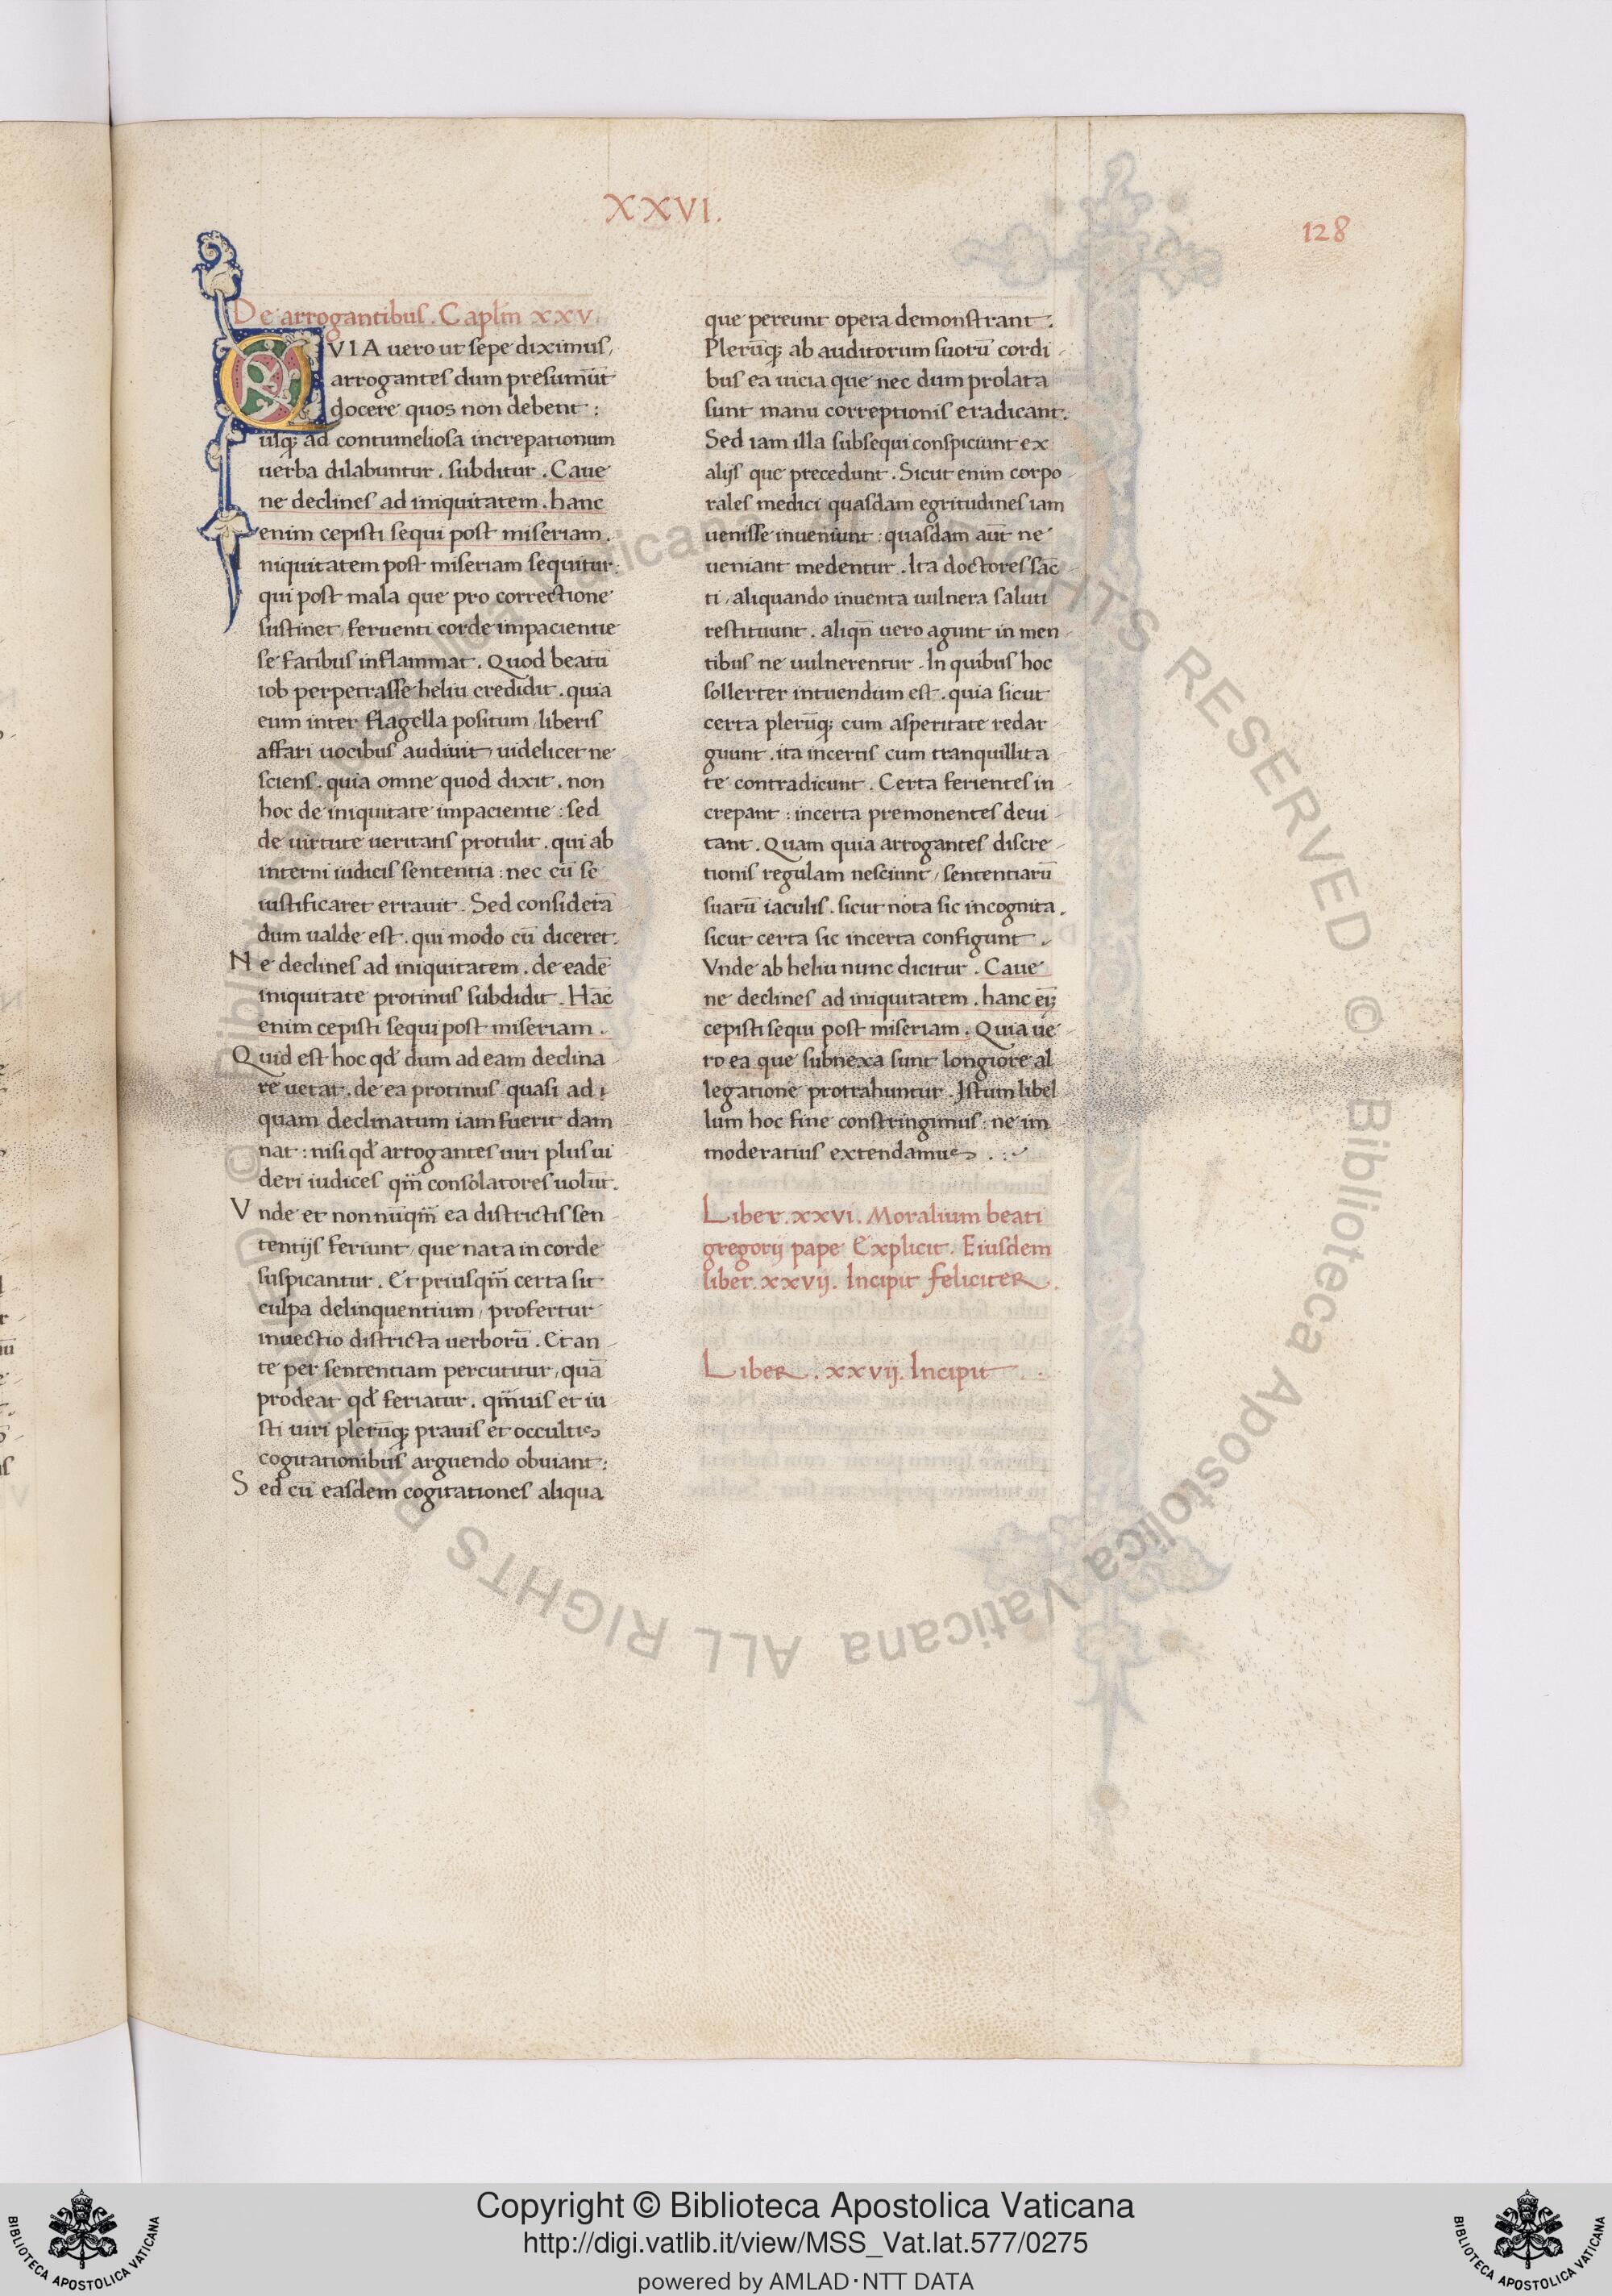 XXVI.
128
De arrogantibus. Caplm xxv.
QVIA uero ut sepe diximus,
arrogantes dum presumūt
docere quos non debent:
usq; ad contumeliosa increpationum
uerba dilabuntur. subditur. Caue
ne declines ad iniquitatem. hanc
enim cepisti sequi post miseriam.
niquitatem post miseriam sequitur:
qui post mala que pro correctione
sustinet, feruenti corde impacientie
se fatibus inflammat. Quod beatū
iob perpetrasse heliu credidit. quia
eum inter flagella positum, liberis
affari uocibus audiuit, uidelicet ne
sciens. quia omne quod dixit. non
hoc de iniquitate impacientie: sed
de uirtute ueritatis protulit. qui ab
interni iudicis sententia: nec cū se
iustificaret errauit. Sed considerā
dum ualde est. qui modo cū diceret.
Ne declines ad iniquitatem. de eadē
iniquitate protinus subdidit. Hāc
enim cepisti sequi post miseriam.
Quid est hoc qd̄ dum ad eam declina-
re uetat. de ea protinus quasi ad
quam declinatum iam fuerit dam
nat: nisi qd̄ arrogantes uiri plus ui
deri iudices qm̄ consolatores uolūt.
Vnde et non nūqm̄ ea districtis sen-
tentijs feriunt, que nata in corde
suspicantur. Et priusqm̄ certa sit
culpa delinquentium, profertur
inuectio districta uerborū. Et an-
te per sententiam percutitur, quā
prodeat qd̄ feriatur. qm̄uis et iu
sti uiri plerūq; prauis et occultis
cogitationibus arguendo obuiant:
Sed cū easdem cogitationes aliqua
que pereunt opera demonstrant:
Plerūq; ab auditorum suorū cordi-
bus ea uicia que nec dum prolata
sunt manu correptionis eradicant.
Sed iam illa subsequi conspiciunt ex
alijs que precedunt. Sicut enim corpo-
rales medici quasdam egritudines iam
uenisse inueniunt: quasdam aūt ne
ueniant medentur. Ita doctores sāc
ti, aliquando inuenta uulnera saluti
restituunt. aliqn̄ uero agunt in men-
tibus ne uulnerentur. In quibus hoc
sollerter intuendum est. quia sicut
certa plerūq; cum asperitate redar-
guunt. ita incertis cum tranquillita-
te contradicunt. Certa ferientes in-
crepant: incerta premonentes deui-
tant. Quam quia arrogantes discre-
tionis regulam nesciunt, sententiarū
suarū iaculis. sicut nota sic incognita.
sicut certa sic incerta configunt.
Vnde ab heliu nunc dicitur. Caue
ne declines ad iniquitatem. hanc ei;
cepisti sequi post miseriam. Quia ue-
ro ea que subnexa sunt longiore al
legatione protrahuntur. Istum libel
lum hoc fine constringimus: ne im
moderatius extendamus.
Liber. xxvi. Moralium beati
gregorij pape Explicit. Eiusdem
liber. xxvij. Incipit feliciter.
Liber. xxvij. Incipit
© Biblioteca Apostolica Vaticana ALL RIGHTS RESERVED © Biblioteca Apostolica Vaticana ALL RIGHTS RESERVED
Copyright © Biblioteca Apostolica Vaticana
http://digi.vatlib.it/view/MSS_Vat.lat.577/0275
powered by AMLAD·NTT DATA
BIBLIOTECA APOSTOLICA VATICANA
BIBLIOTECA APOSTOLICA VATICANA